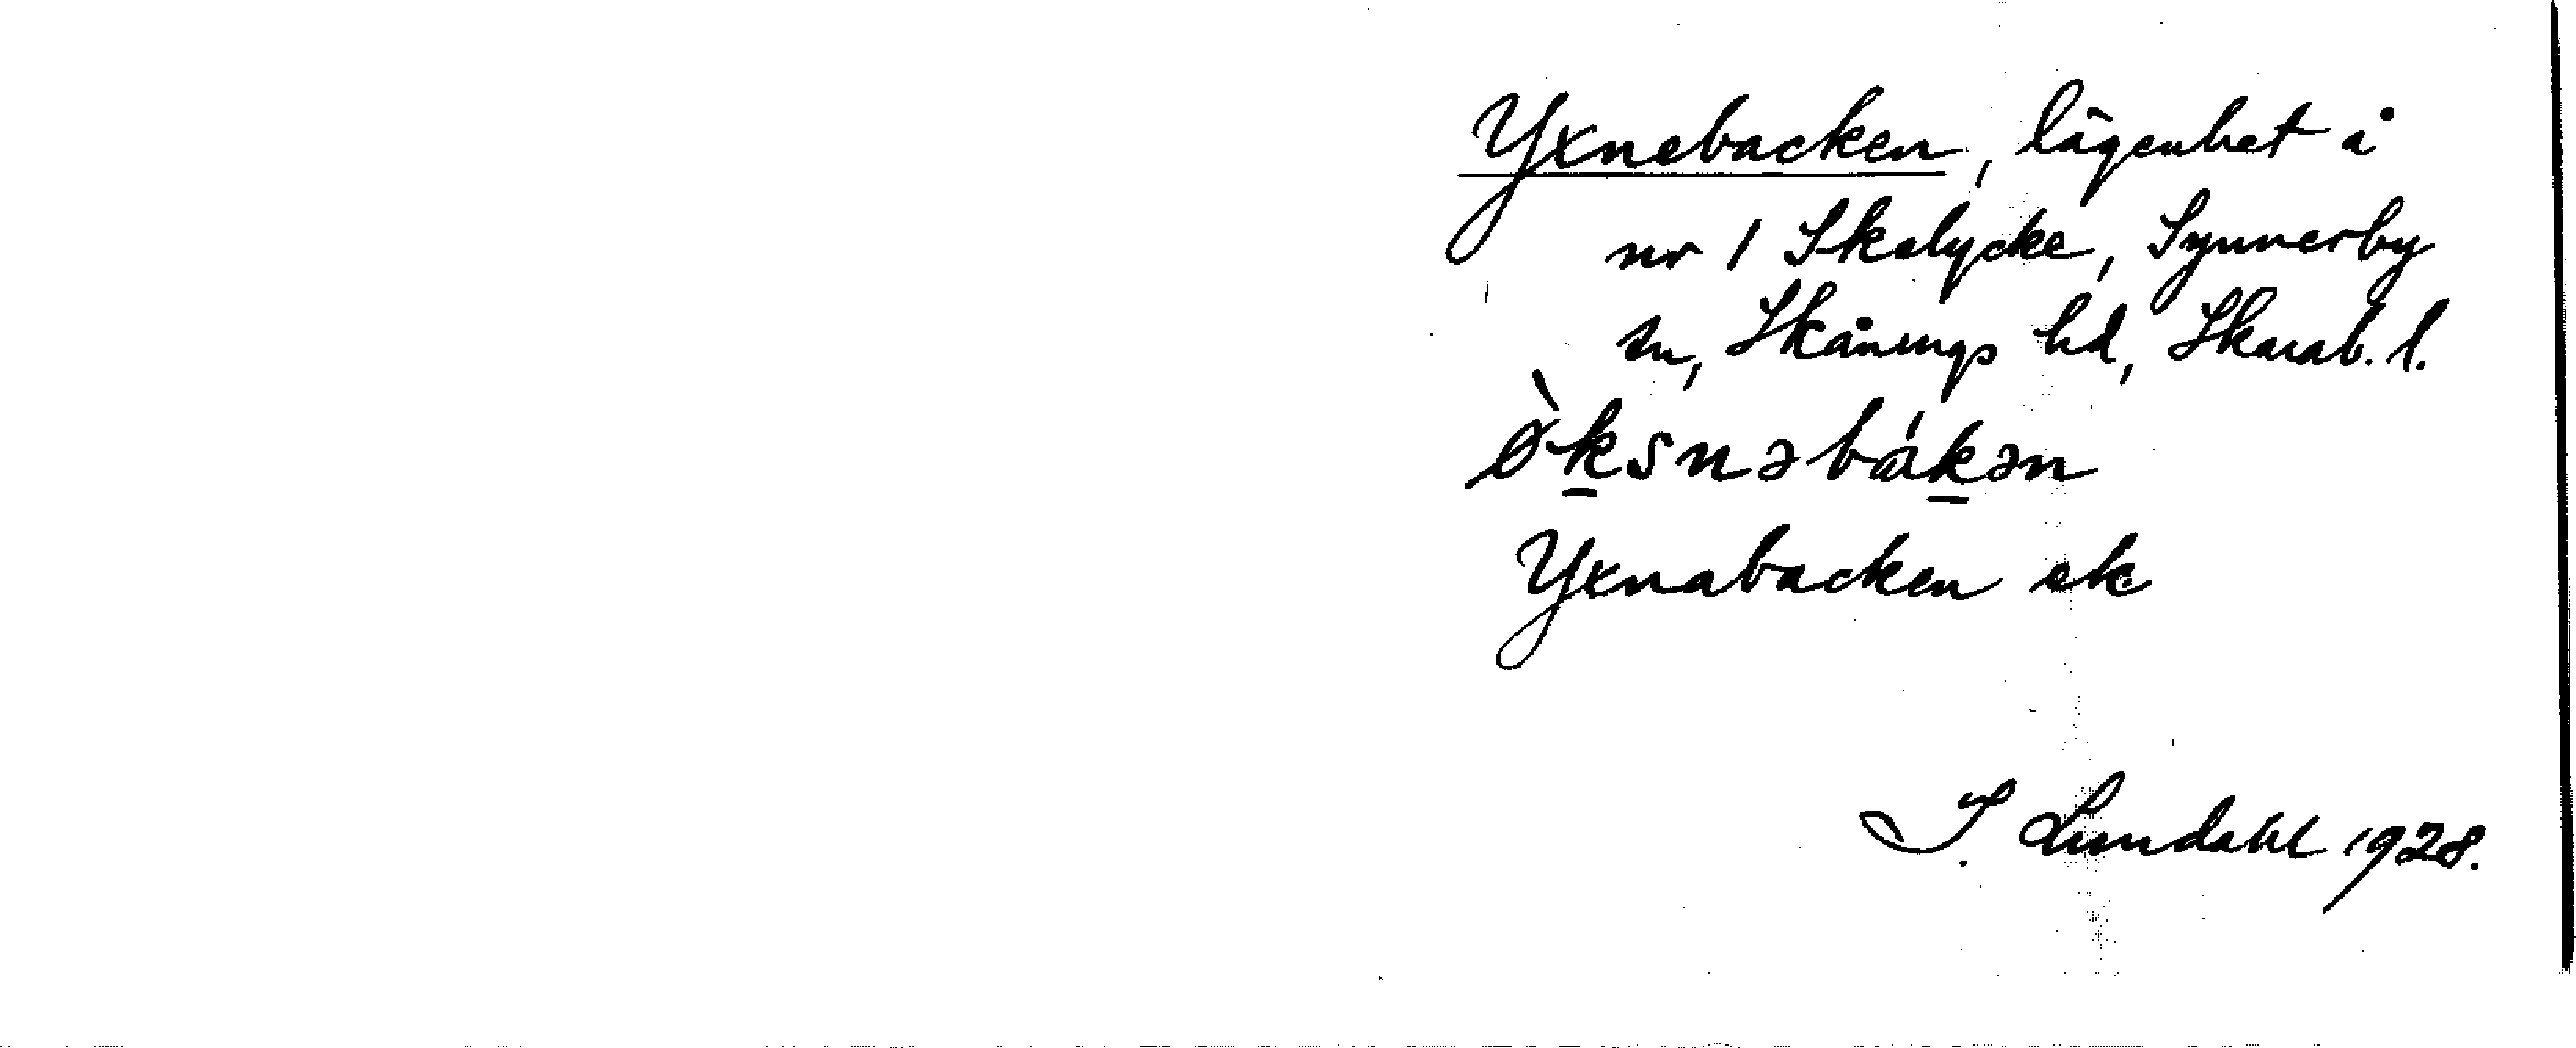 Yxnebacken, lägenhet å
nr 1 Skelycke, Synnerby
sn, Skånings hd, Skarab. l.
ø̀ksnəbákən
Yxnabacken ek
I. Lundahl 1928.